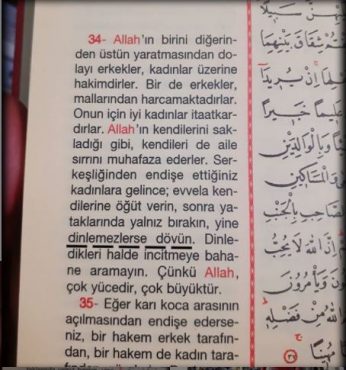 34- Allah'ın birini diğerin-
den üstün yaratmasından do-
layı erkekler, kadınlar üzerine
hakimdirler. Bir de erkekler,
mallarından harcamaktadırlar.
Onun için iyi kadınlar itaatkar-
dırlar. Allah'ın kendilerini sak-
ladığı gibi, kendileri de aile
sırrını muhafaza ederler. Ser-
keşliğinden endişe ettiğiniz
kadınlara gelince; evvela ken-
dilerine öğüt verin, sonra ya-
taklarında yalnız bırakın, yine
dinlemezlerse dövün. Dinle-
dikleri halde incitmeye baha-
ne aramayın. Çünkü Allah,
çok yücedir, çok büyüktür.
35- Eğer karı koca arasının
açılmasından endişe ederse-
niz, bir hakem erkek tarafın-
dan, bir hakem de kadın tara-
شِقَاقَ بَيْنِهِمَا
خَبِيرًا
وَبِالْوَالِدَيْنِ
وَالْمَسَاكِينِ
بِالْجَنْبِ
اللّٰهَ لَا يُحِبُّ
وَيَأْمُرُونَ
اللّٰهُ مِنْ فَضْلِهِ